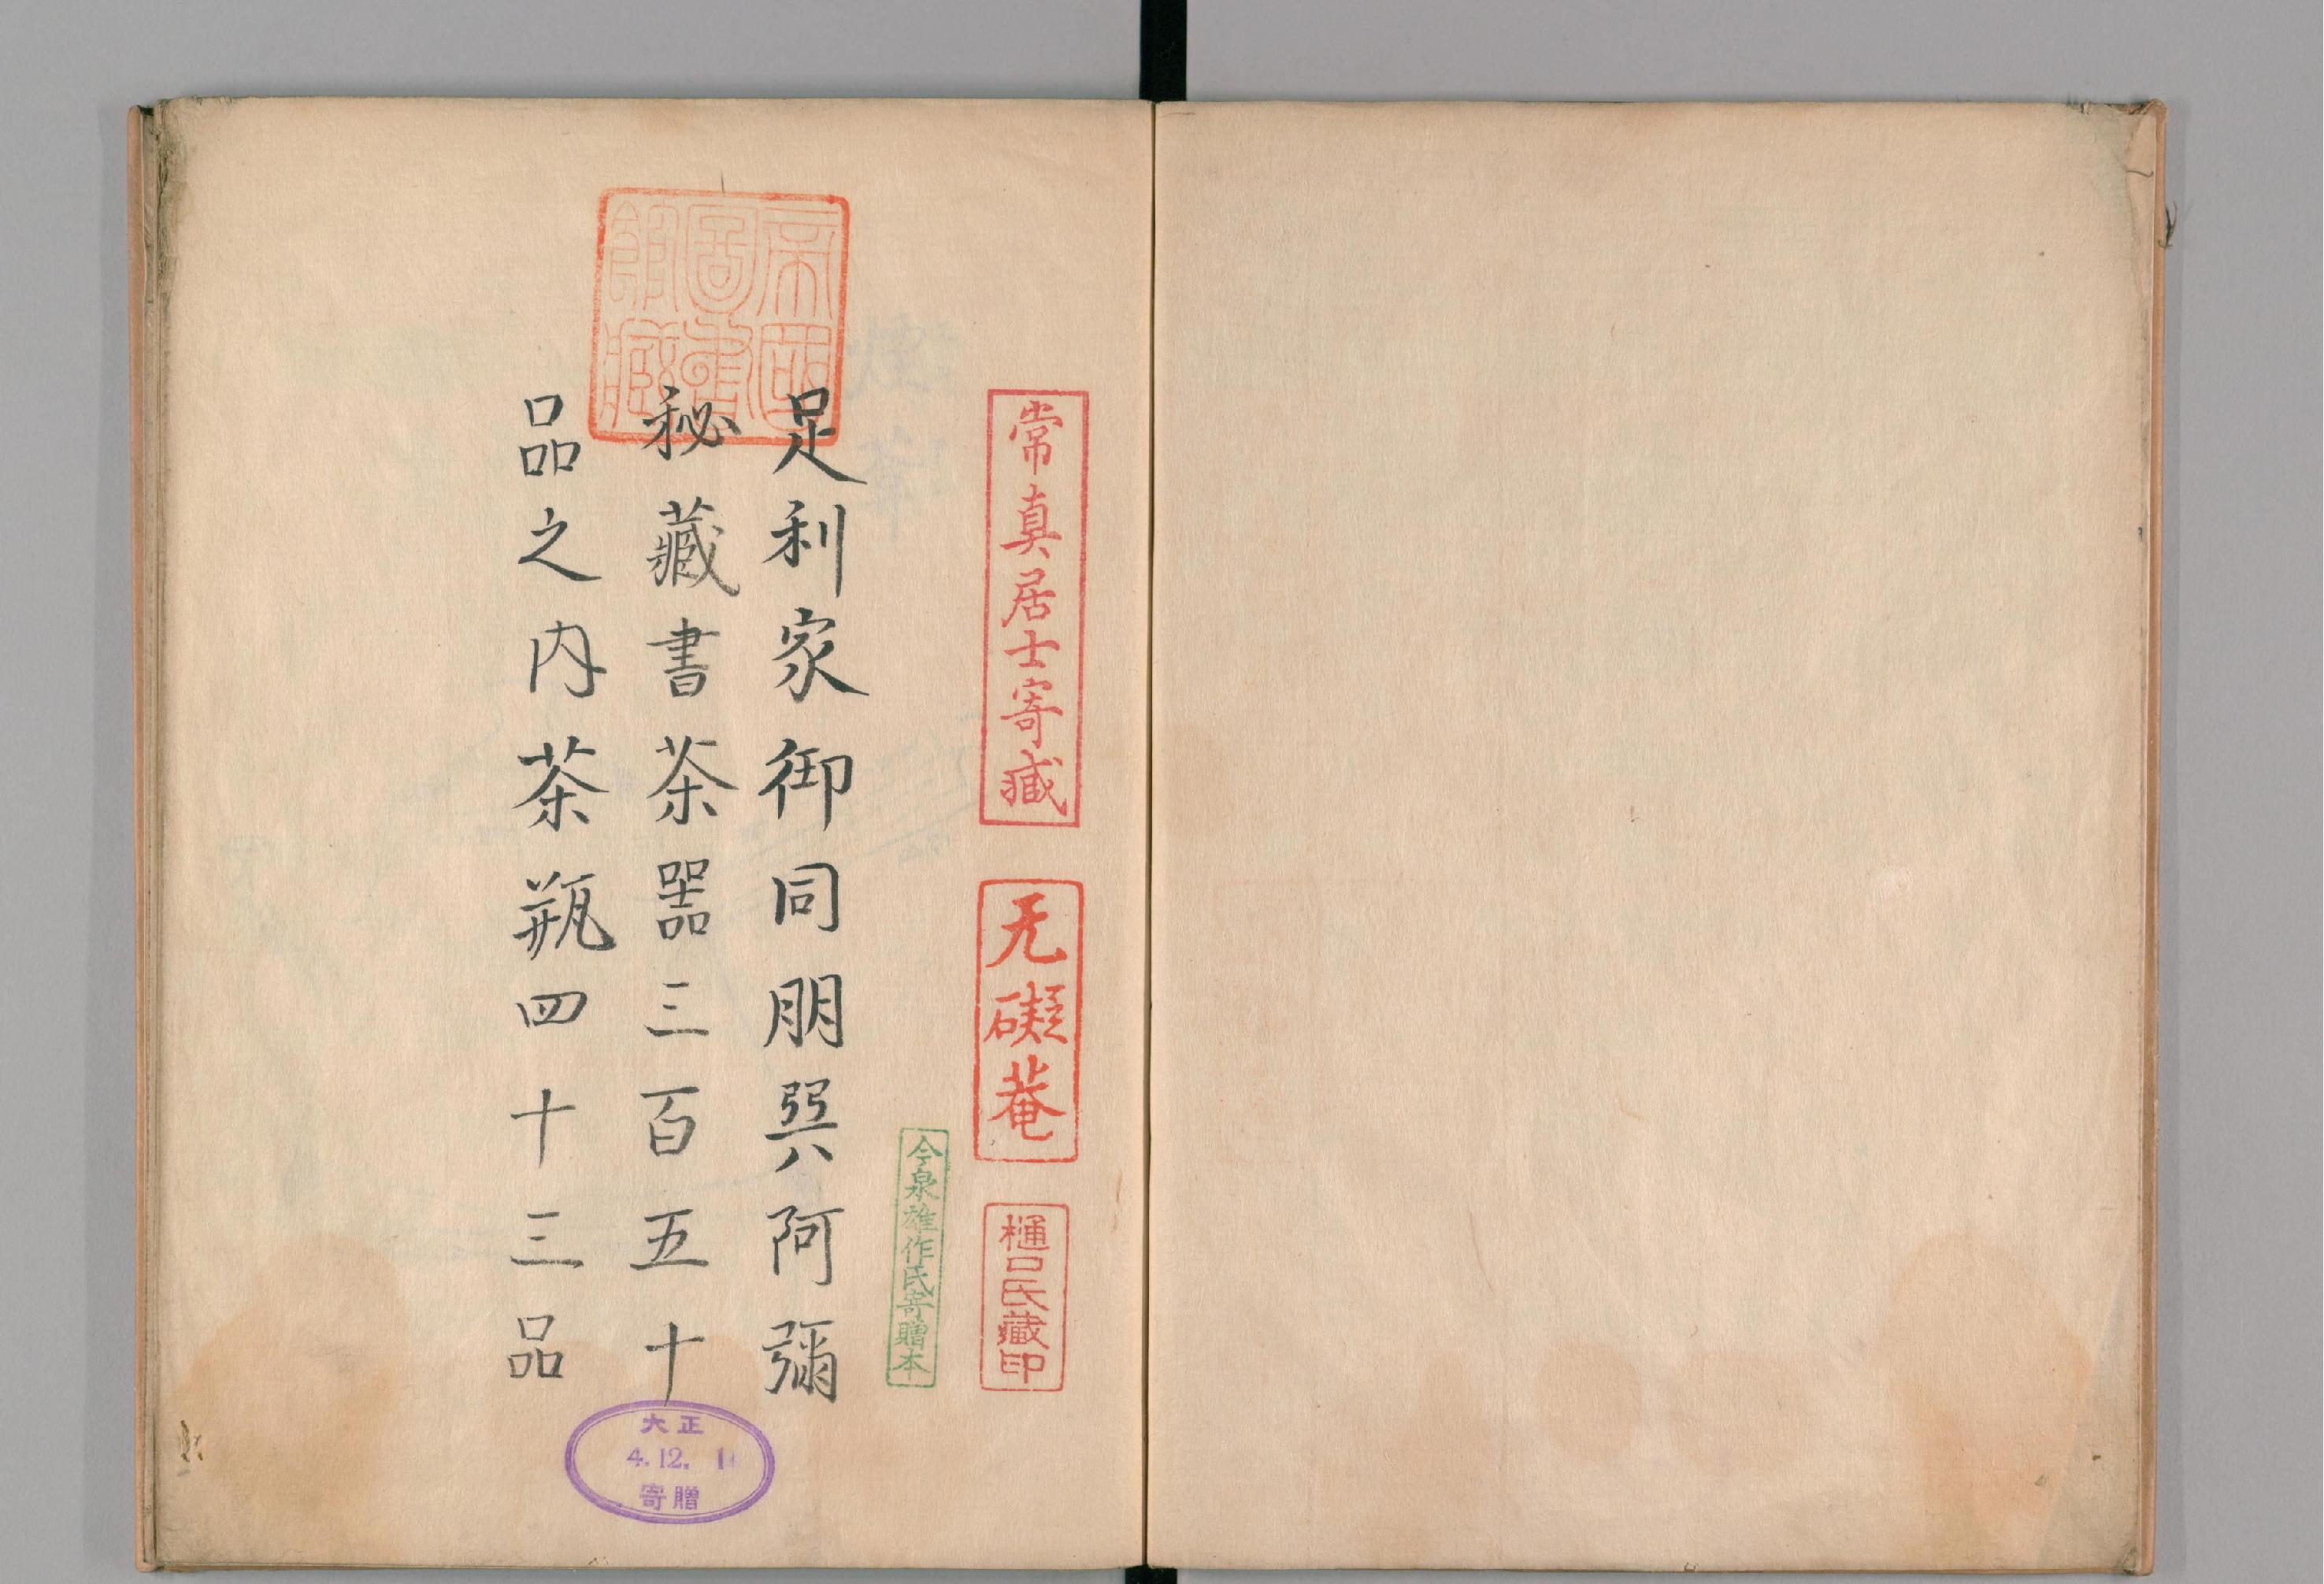 常真居士寄臧
无礙菴
樋口氏藏印
今泉雄作氏寄贈本
帝國
圖書
館臧
足利家御同朋㢲阿彌
秘藏書茶器三百五十
品之内茶瓶四十三品
大正
4.12.
寄贈